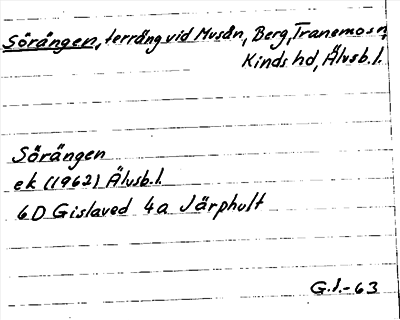 Sörängen, terräng vid Musån, Berg, Tranemo sn,
Kinds hd, Älvsb.l.
Sörängen
ek (1962) Älvsb.l.
6D Gislaved 4a Järphult
G.l.-63